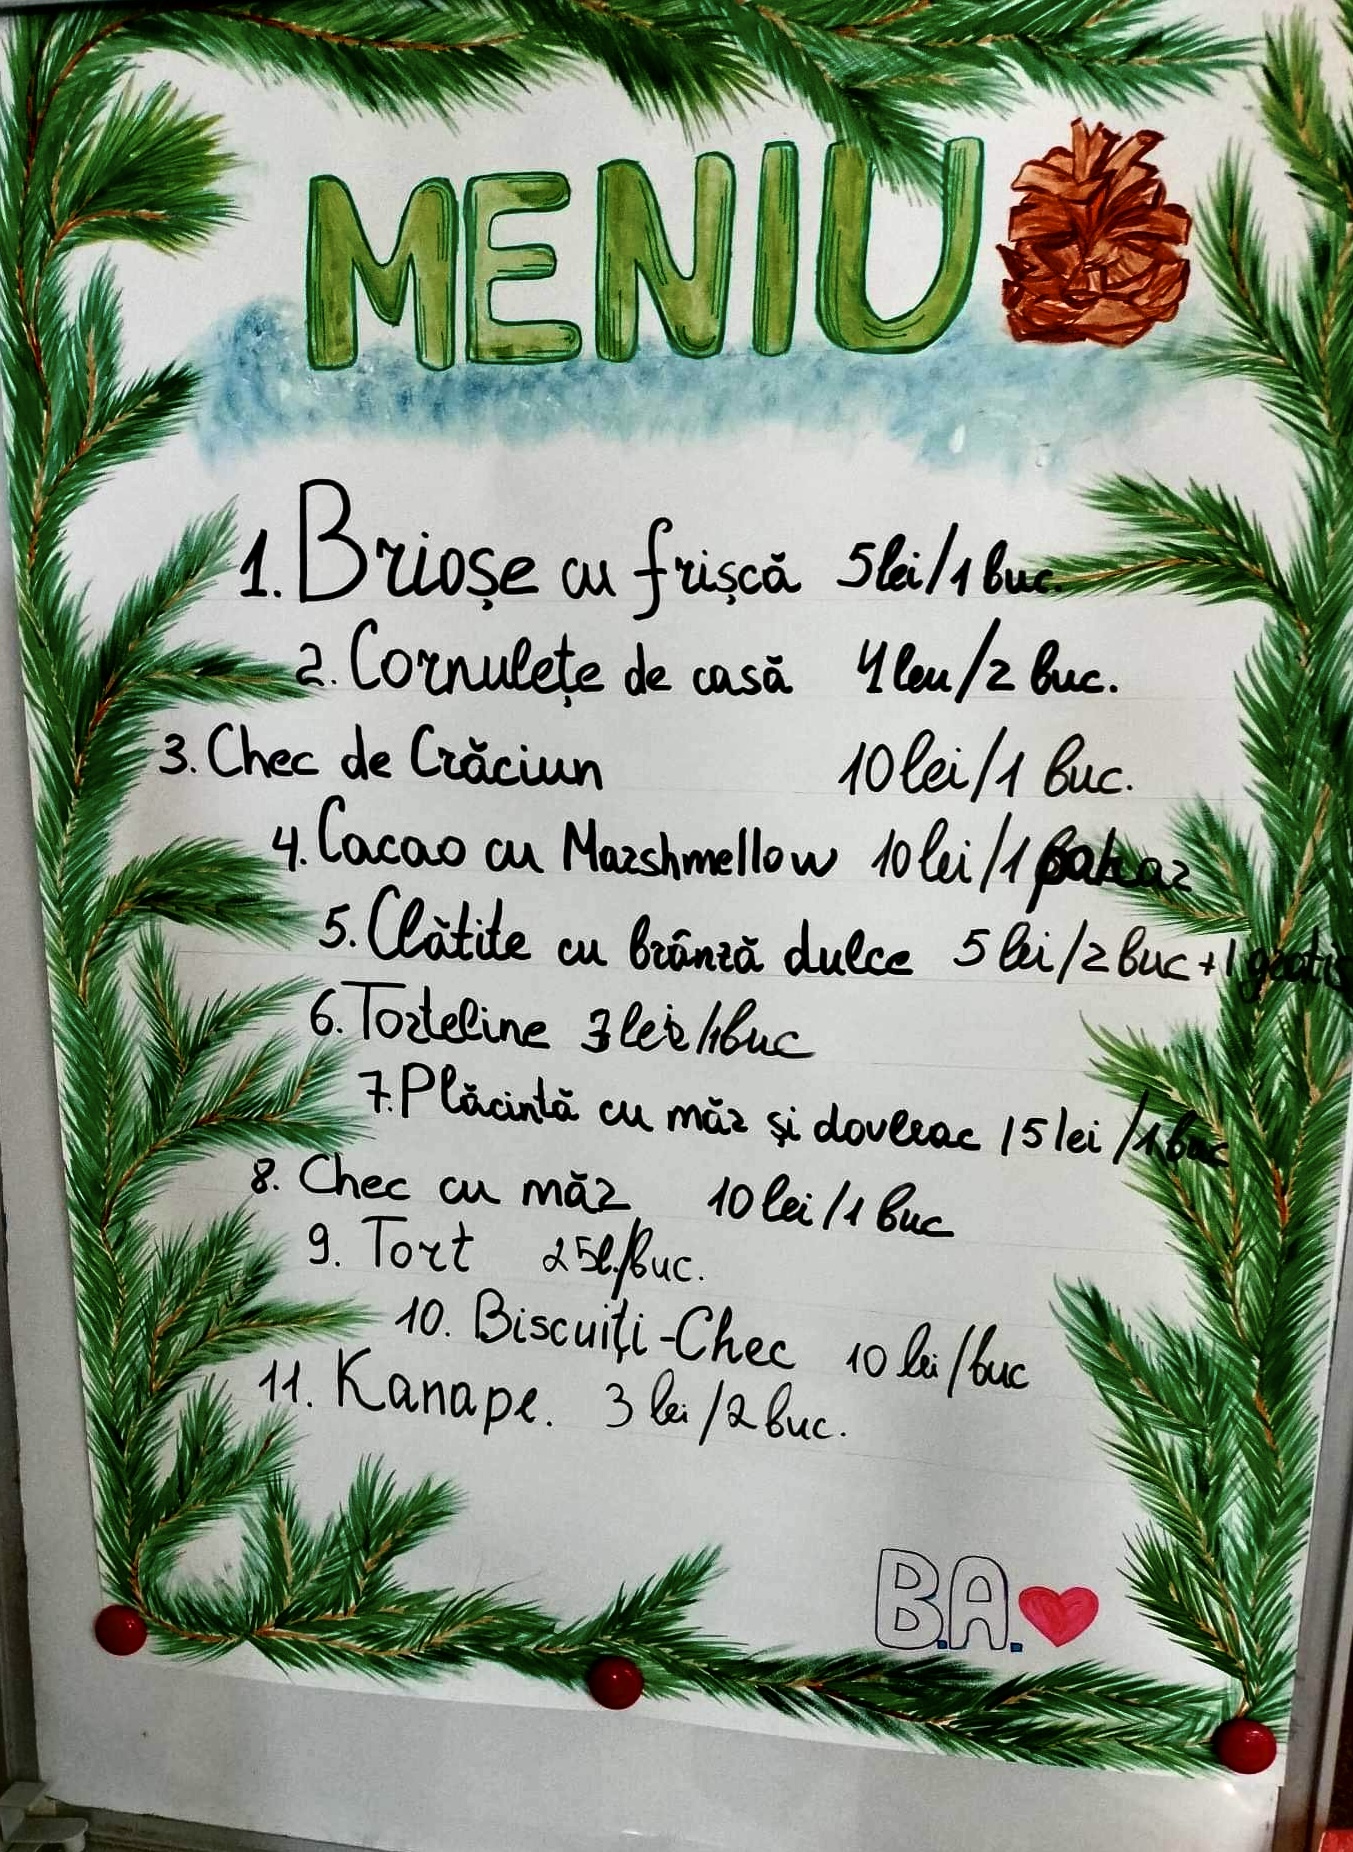 MENIU
1. Brioșe cu frișcă 5lei/1 buc.
2. Cornulețe de casă 1 leu/2 buc.
3. Chec de Crăciun 10 lei/1 buc.
4. Cacao cu Marshmellow 10 lei/1 pahar
5. Clătite cu brânză dulce 5 lei/2 buc + 1 gratis
6. Torteline lei/1buc
7. Plăcintă cu măr și dovleac 15 lei /1 buc
8. Chec cu măr 10 lei/1 buc
9. Tort 25l./buc.
10. Biscuiți-Chec 10 lei/buc
11. Kanape. 3 lei/2 buc.
B.A.